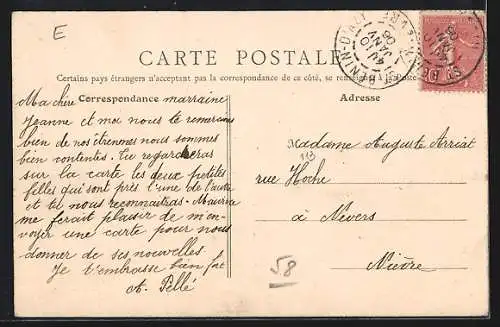 E
CARTE POSTALE
Certains pays étrangers n'acceptant pas la correspondance de ce côté, se renseigner à la Poste
Correspondance
Adresse
Ma chère marraine
Jeanne et moi nous te remercions
bien de nos étrennes nous sommes
bien contentes. Tu regarderas
sur la carte les deux petites
filles qui sont près l'une de l'autre
et tu nous reconnaîtras. Maurice
me ferait plaisir de m'en-
voyer une carte pour nous
donner de ses nouvelles.
Je t'embrasse bien fort
A. Pellé
Madame Auguste Arriat
113
rue Hoche
à Nevers
Nièvre
58
JANV
06